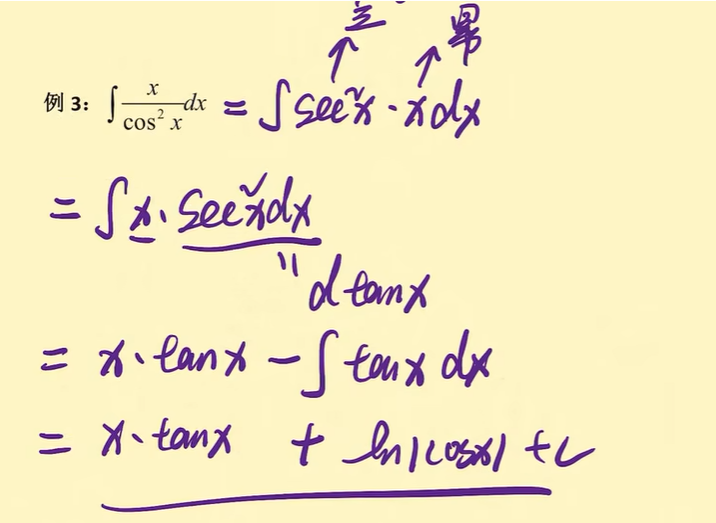 三 幂
例 3: ∫ x/cos² x dx = ∫ sec²x · x dx
= ∫ x · sec²x dx
" d tanx
= x · tanx − ∫ tanx dx
= x · tanx + ln|cosx| + C